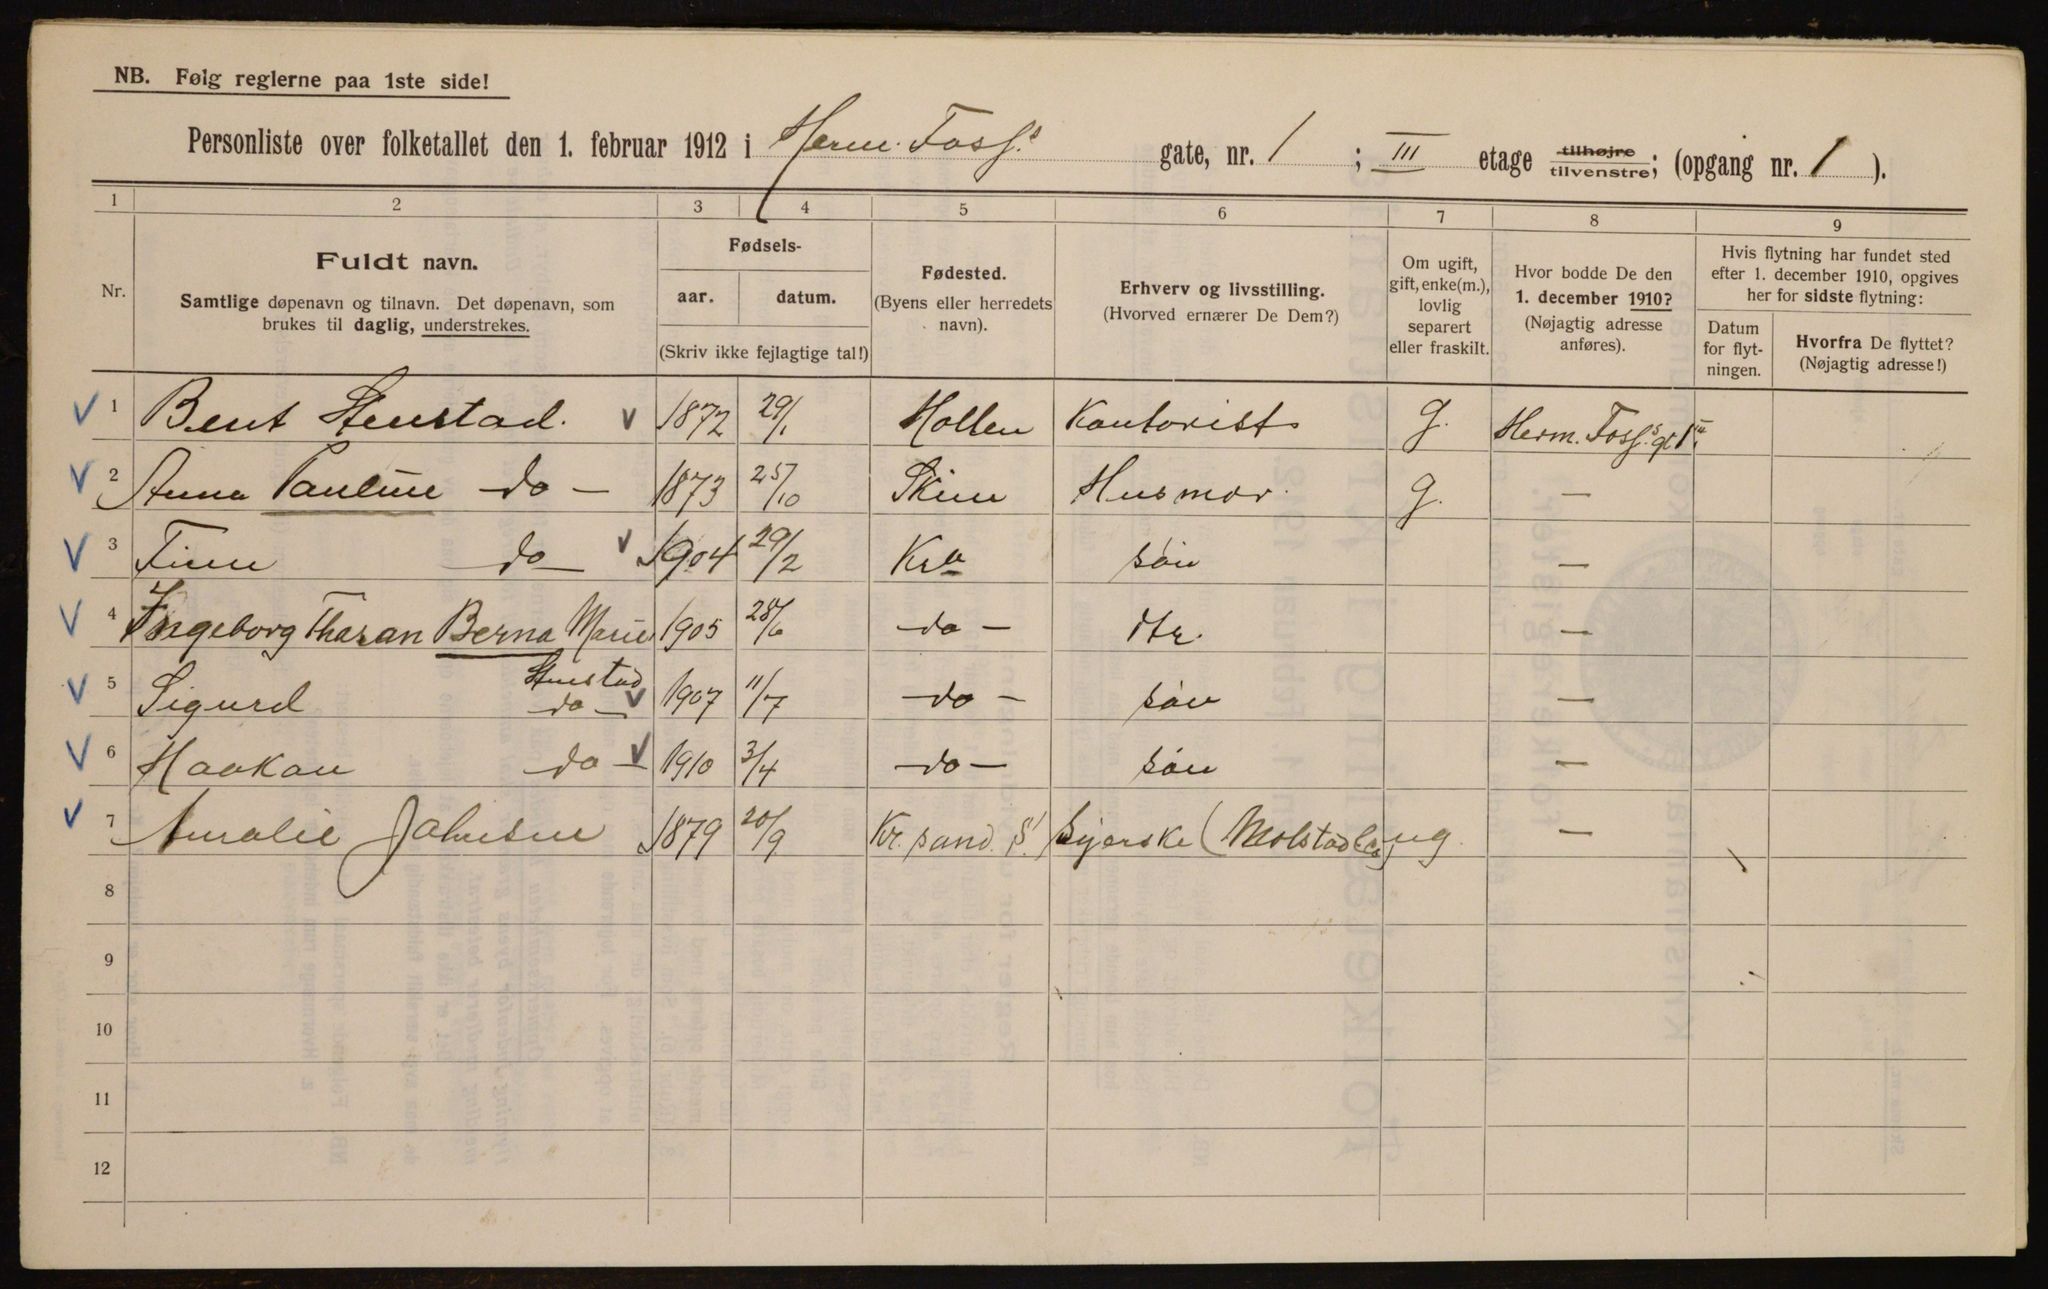 NB. Følg reglerne paa 1ste side!
Personliste over folketallet den 1. februar 1912 i Herm. Foss.s gate, nr. 1 ; III etage tilhøjre tilvenstre; (opgang nr. 1 ).
1 2 3 4 5 6 7 8 9
Nr.
Fuldt navn.
Samtlige døpenavn og tilnavn. Det døpenavn, som
brukes til daglig, understrekes.
Fødsels-
aar. datum.
(Skriv ikke fejlagtige tal!)
Fødested.
(Byens eller herredets
navn).
Erhverv og livsstilling.
(Hvorved ernærer De Dem?)
Om ugift,
gift, enke(m.),
lovlig
separert
eller fraskilt.
Hvor bodde De den
1. december 1910?
(Nøjagtig adresse
anføres).
Hvis flytning har fundet sted
efter 1. december 1910, opgives
her for sidste flytning:
Datum
for flyt-
ningen.
Hvorfra De flyttet?
(Nøjagtig adresse!)
1 Bent Stenstad. 1872 29/1 Hollen Kontorist g. Herm. Foss.s gt 1 III
2 Anna Pauline do - 1873 25/10 Skien Husmor. g. —
3 Finn do - 1904 29/2 Kra søn —
4 Ingeborg Tharan Berna Marie 1905 28/6 do - dtr. —
Stenstad
5 Sigurd do - 1907 11/7 do - søn —
6 Haakon do - 1910 3/4 do - søn —
7 Amalie Johnsen 1879 20/9 Kr. sand. S. Syerske (Molstad &Co) ug. —
8
9
10
11
12